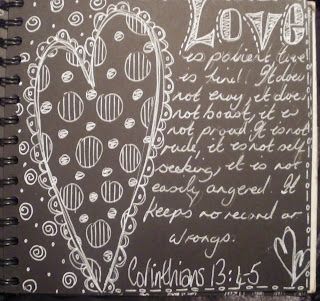 Love
is patient, love
is kind. It does
not envy, it does
not boast, it is
not proud. It is not
rude, it is not self
seeking, it is not
easily angered. It
keeps no record of
wrongs.
Corinthians 13:4-5